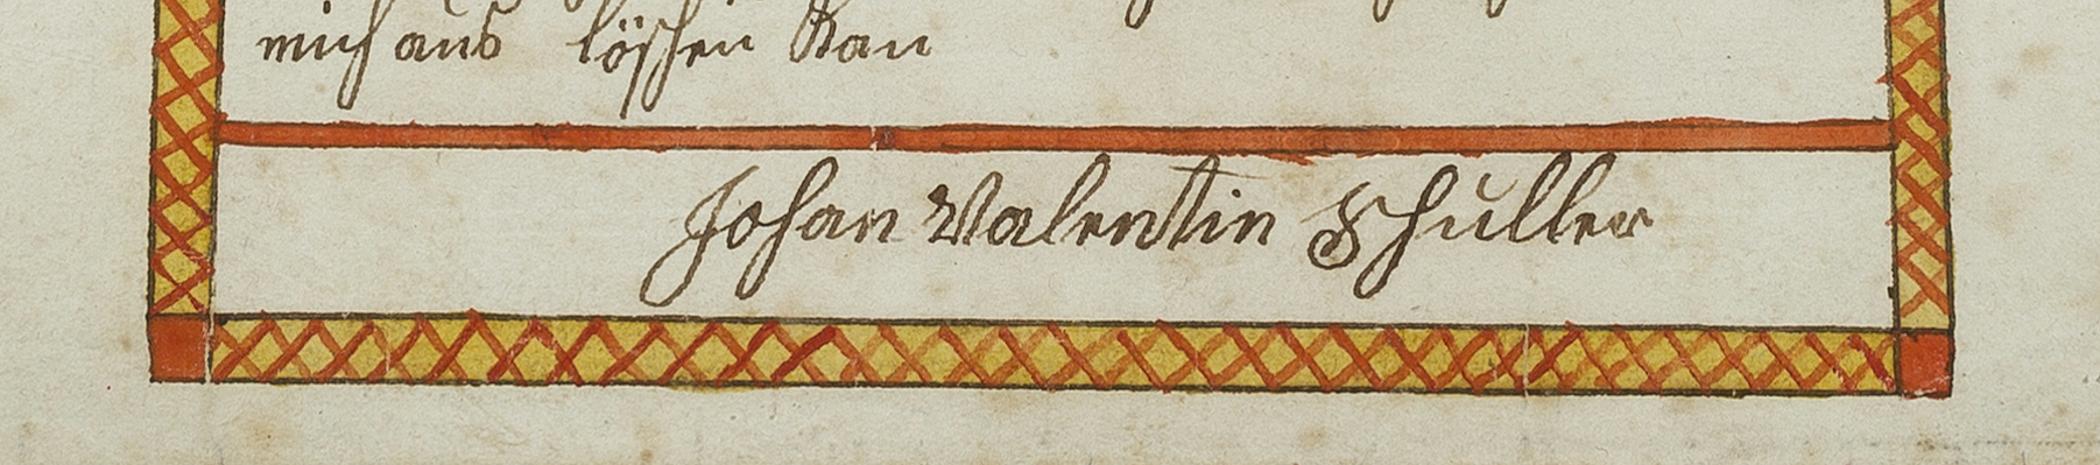 mich aus löschen Kan
Johan Valentin Schuller